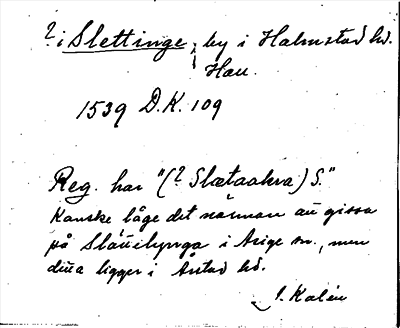 ? i Slettinge, by i Halmstad hd.
Hall.
1539 D.K. 109
Reg. har "(? Slætaakra) S."
Kanske låge det närmare att gissa
på Slättilynga i Årige sn., men
detta ligger i Årstad hd.
J. Kalén